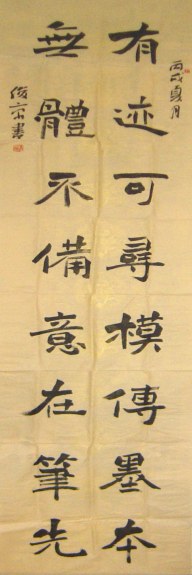 丙戌夏月
有迹可尋模傳墨本
無體不備意在筆先
俊宗書